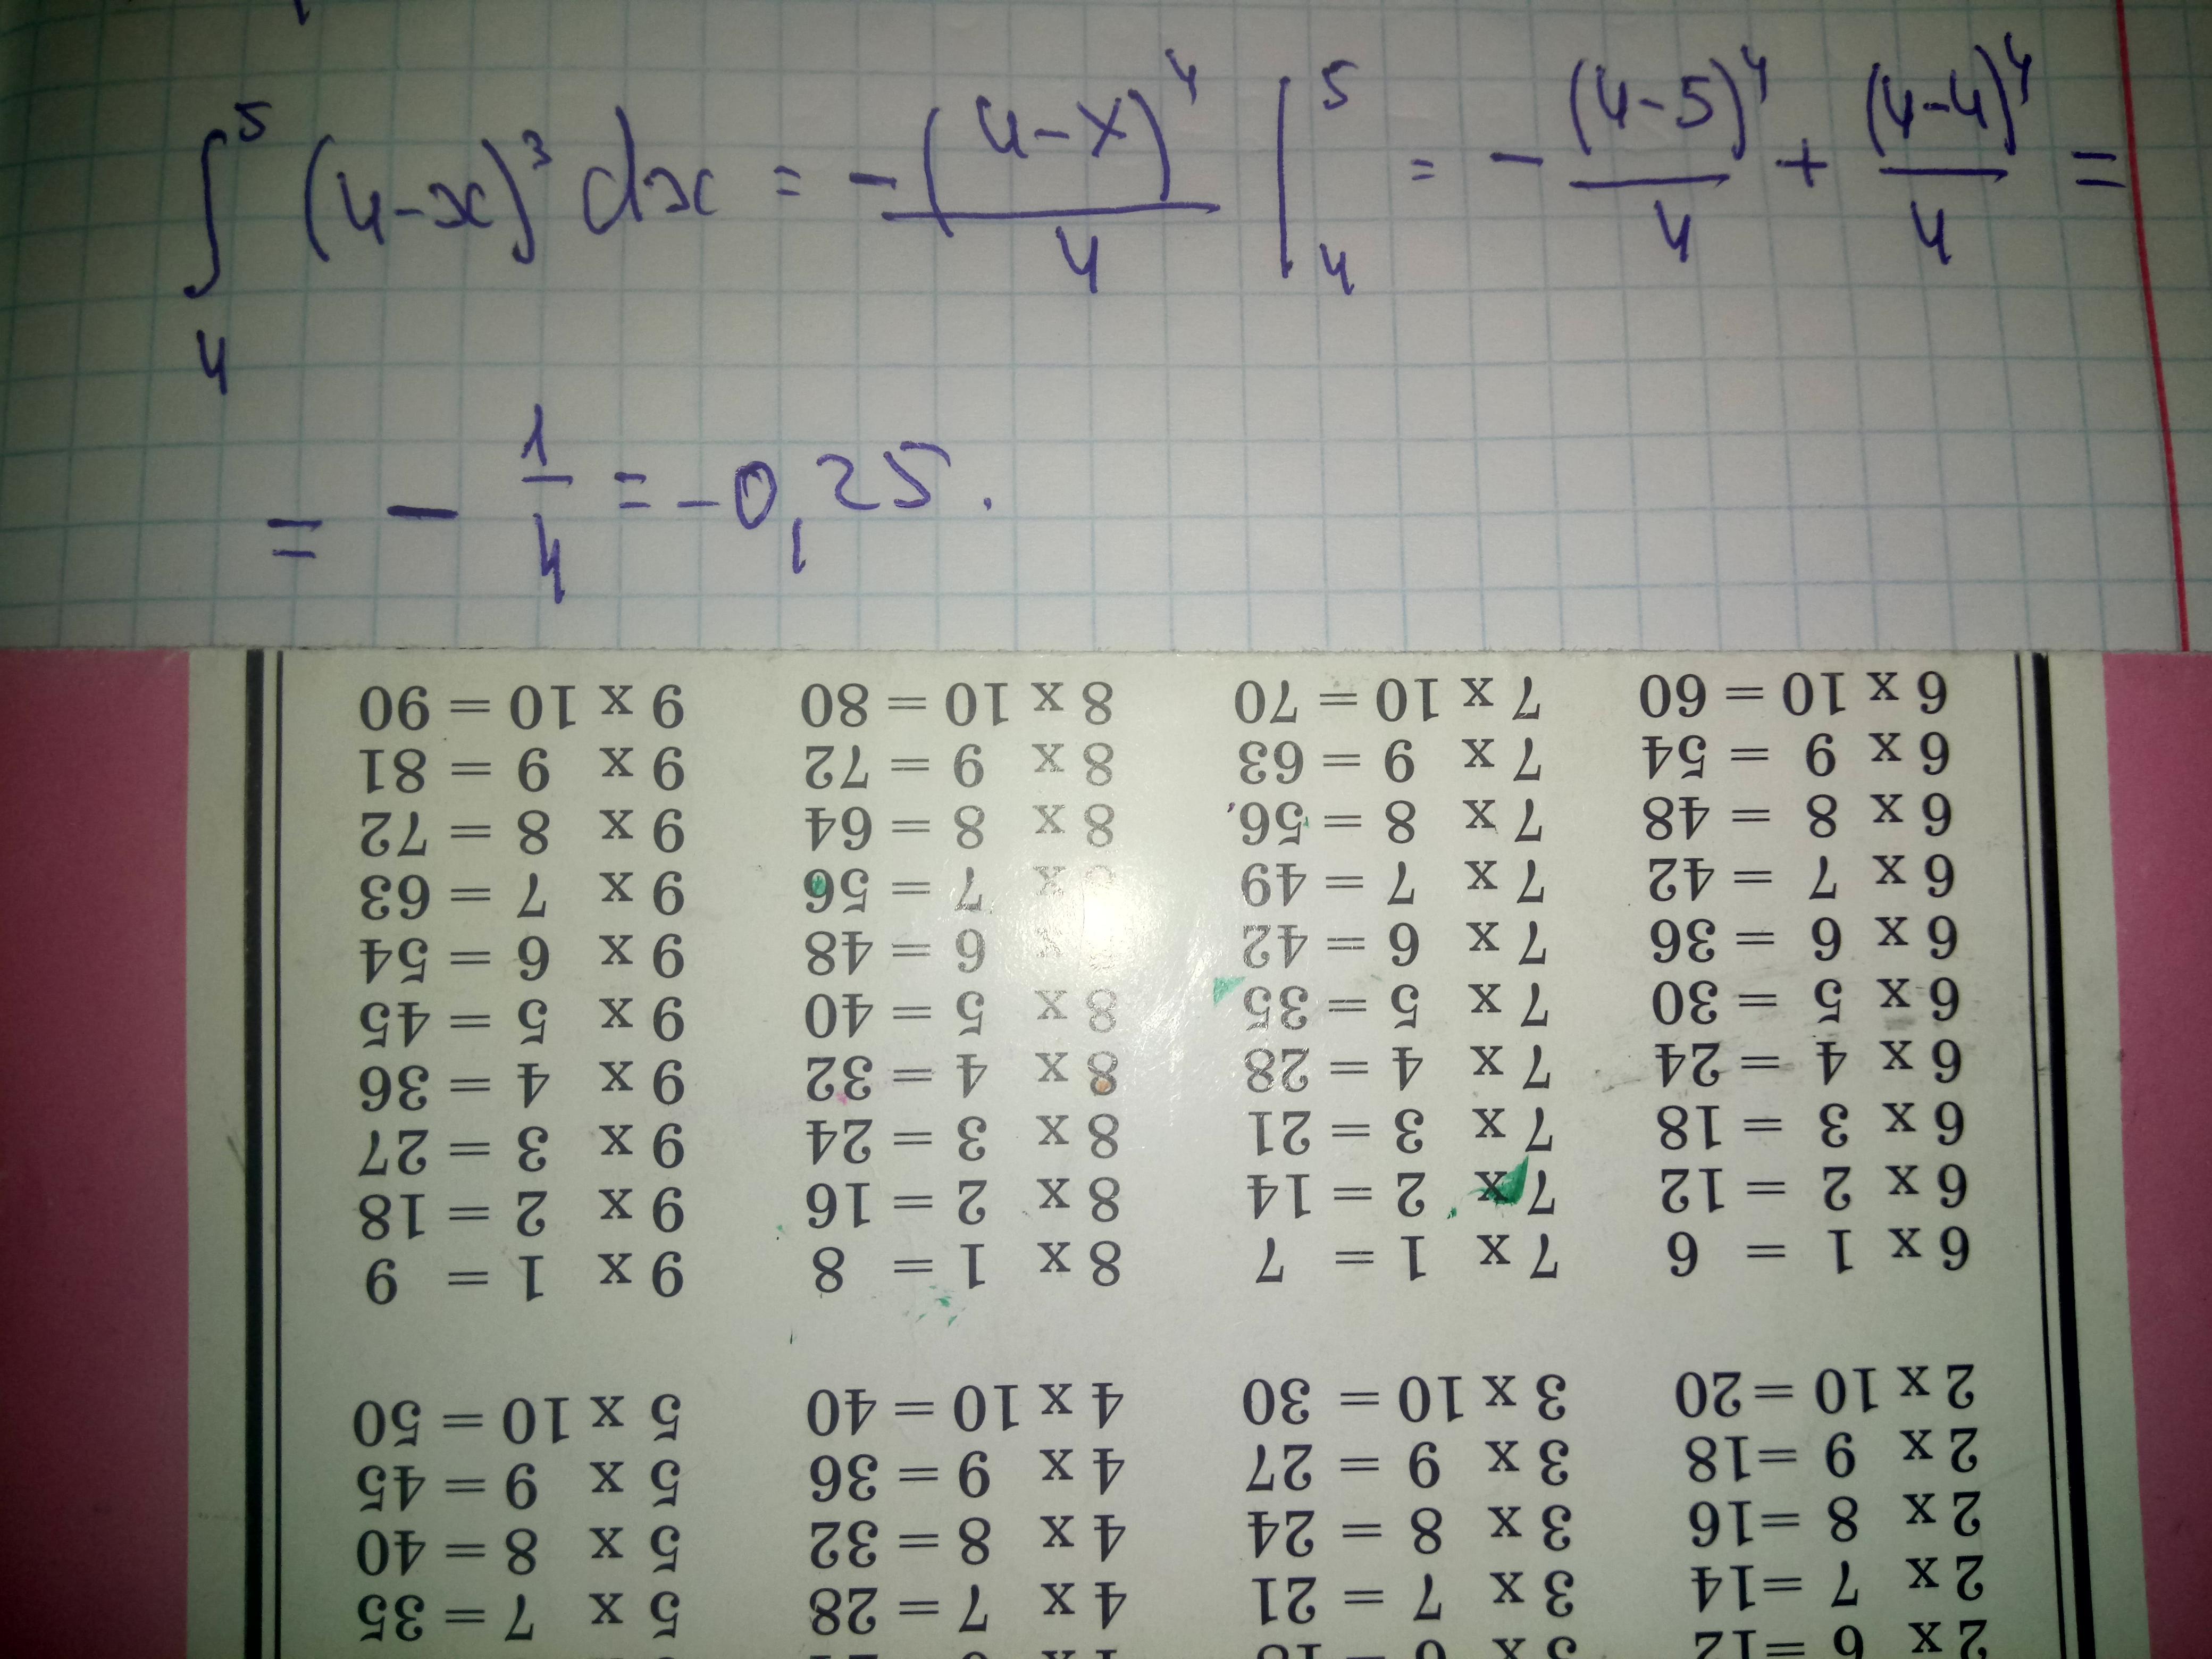 ∫₄⁵ (4-x)³ dx = -(4-x)⁴/4 |₄⁵ = -(4-5)⁴/4 + (4-4)⁴/4 =
= - 1/4 = -0,25.
2 x 6 =12
2 x 7 =14 3 x 7 = 21 4 x 7 = 28 5 x 7 = 35
2 x 8 =16 3 x 8 = 24 4 x 8 = 32 5 x 8 = 40
2 x 9 =18 3 x 9 = 27 4 x 9 = 36 5 x 9 = 45
2 x 10 =20 3 x 10 = 30 4 x 10 = 40 5 x 10 = 50
6 x 1 = 6 7 x 1 = 7 8 x 1 = 8 9 x 1 = 9
6 x 2 = 12 7 x 2 = 14 8 x 2 = 16 9 x 2 = 18
6 x 3 = 18 7 x 3 = 21 8 x 3 = 24 9 x 3 = 27
6 x 4 = 24 7 x 4 = 28 8 x 4 = 32 9 x 4 = 36
6 x 5 = 30 7 x 5 = 35 8 x 5 = 40 9 x 5 = 45
6 x 6 = 36 7 x 6 = 42 6 = 48 9 x 6 = 54
6 x 7 = 42 7 x 7 = 49 x 7 = 56 9 x 7 = 63
6 x 8 = 48 7 x 8 = 56 8 x 8 = 64 9 x 8 = 72
6 x 9 = 54 7 x 9 = 63 8 x 9 = 72 9 x 9 = 81
6 x 10 = 60 7 x 10 = 70 8 x 10 = 80 9 x 10 = 90